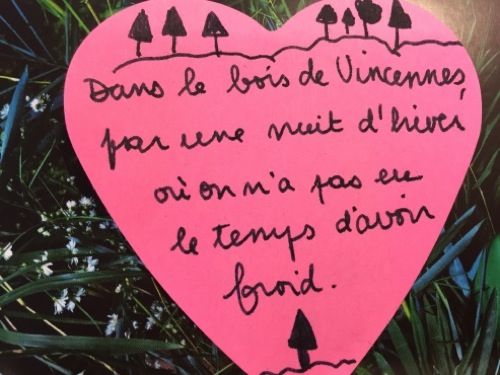 Dans le bois de Vincennes,
par une nuit d'hiver
où on n'a pas eu
le temps d'avoir
froid.